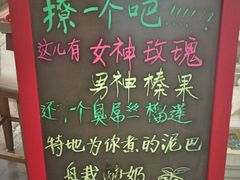 撩一个吧!!!!!
这儿有女神玫瑰
男神榛果
还有一个臭屌丝榴莲
特地为你煮的泥巴
舟栽 奶